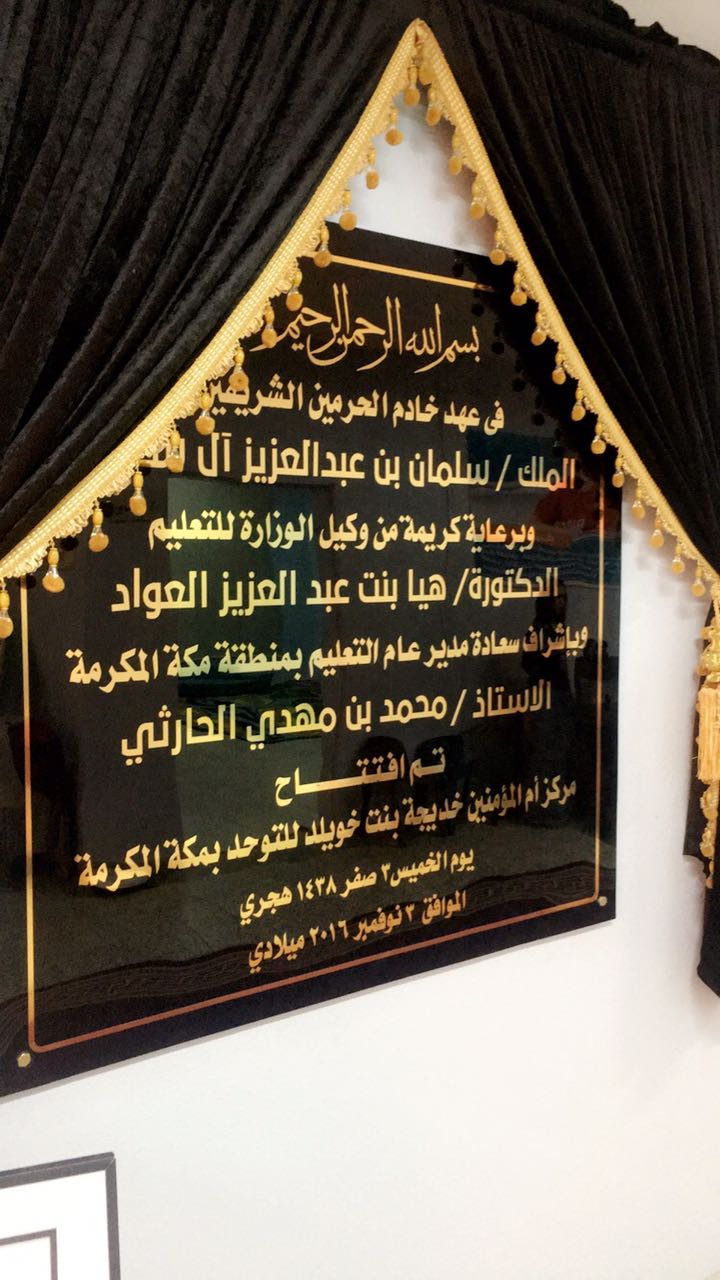 بسم الله الرحمن الرحيم
فى عهد خادم الحرمين الشريفين
الملك / سلمان بن عبدالعزيز آل
وبرعاية كريمة من وكيل الوزارة للتعليم
الدكتورة/ هيا بنت عبد العزيز العواد
وبإشراف سعادة مدير عام التعليم بمنطقة مكة المكرمة
الاستاذ / محمد بن مهدي الحارثي
تم افتتاح
مركز أم المؤمنين خديجة بنت خويلد للتوحد بمكة المكرمة
يوم الخميس ٣ صفر ١٤٣٨ هجري
الموافق ٣ نوفمبر ٢٠١٦ ميلادي